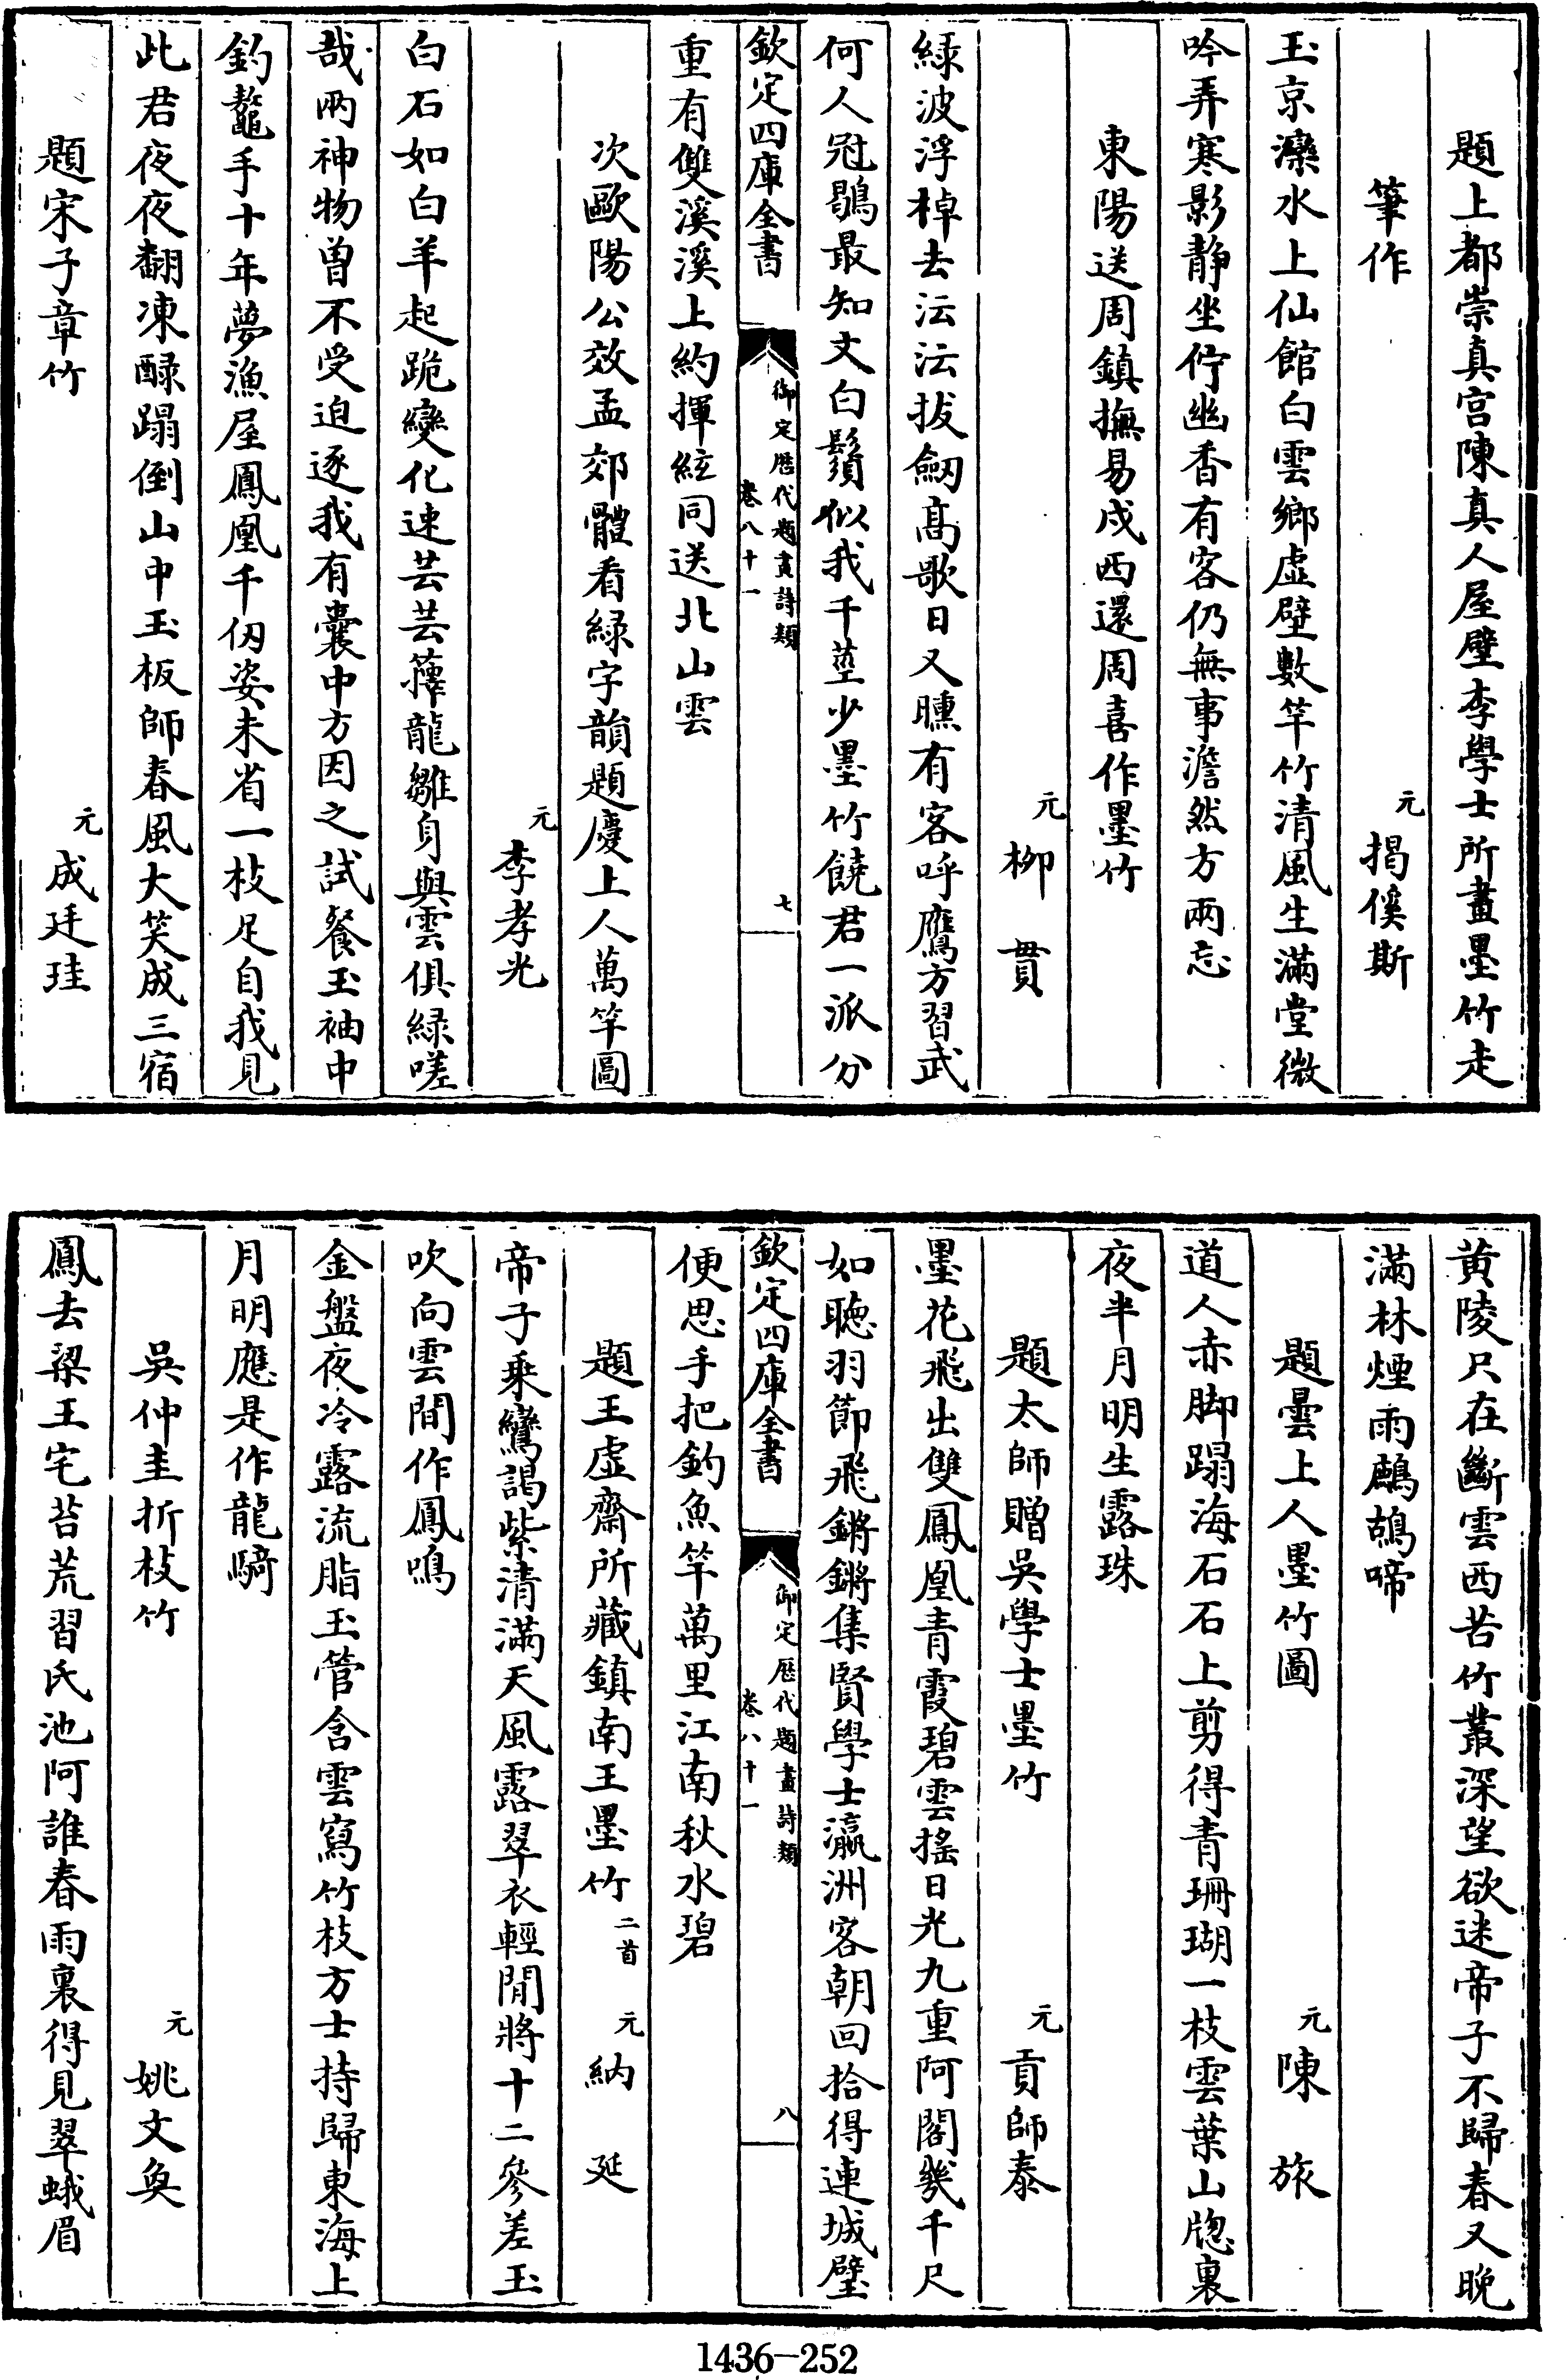 題上都崇真宫陳真人屋壁李學士所畫墨竹走
筆作
元揭傒斯
玉京灤水上仙館白雲鄉虚壁數竿竹清風生滿堂微
吟弄寒影静坐佇幽香有客仍無事澹然方兩忘
東陽送周鎮撫易戍西還周喜作墨竹
元柳貫
緑波浮棹去沄沄拔劒高歌日又曛有客呼鷹方習武
何人冠鶡最知文白鬚似我千莖少墨竹饒君一派分
欽定四庫全書
御定歴代題畫詩類
卷八十一
七
重有雙溪溪上約揮絃同送北山雲
次歐陽公效孟郊體看緑字韻題慶上人萬竿圖
元李孝光
白石如白羊起跪變化速芸芸籜龍雛身與雲俱緑嗟
哉兩神物曽不受迫逐我有囊中方因之試餐玉袖中
釣鼇手十年夢漁屋鳳凰千仭姿未省一枝足自我見
此君夜夜翻凍醁蹋倒山中玉板師春風大笑成三宿
題宋子章竹
元成廷珪
黄陵只在斷雲西苦竹叢深望欲迷帝子不歸春又晚
滿林煙雨鷓鴣啼
題曇上人墨竹圖
元陳旅
道人赤脚蹋海石石上剪得青珊瑚一枝雲葉山牕裏
夜半月明生露珠
題太師贈吳學士墨竹
元貢師泰
墨花飛出雙鳳凰青霞碧雲搖日光九重阿閣幾千尺
如聴羽節飛鏘鏘集賢學士瀛洲客朝回拾得連城璧
欽定四庫全書
御定歴代題畫詩類
卷八十一
八
便思手把釣魚竿萬里江南秋水碧
題王虚齋所藏鎮南王墨竹二首
元納延
帝子乘鸞謁紫清滿天風露翠衣輕閒將十二參差玉
吹向雲間作鳳鳴
金盤夜冷露流脂玉管含雲寫竹枝方士持歸東海上
月明應是作龍騎
吳仲圭折枝竹
元姚文奐
鳳去梁王宅苔荒習氏池阿誰春雨裏得見翠蛾眉
1436-252